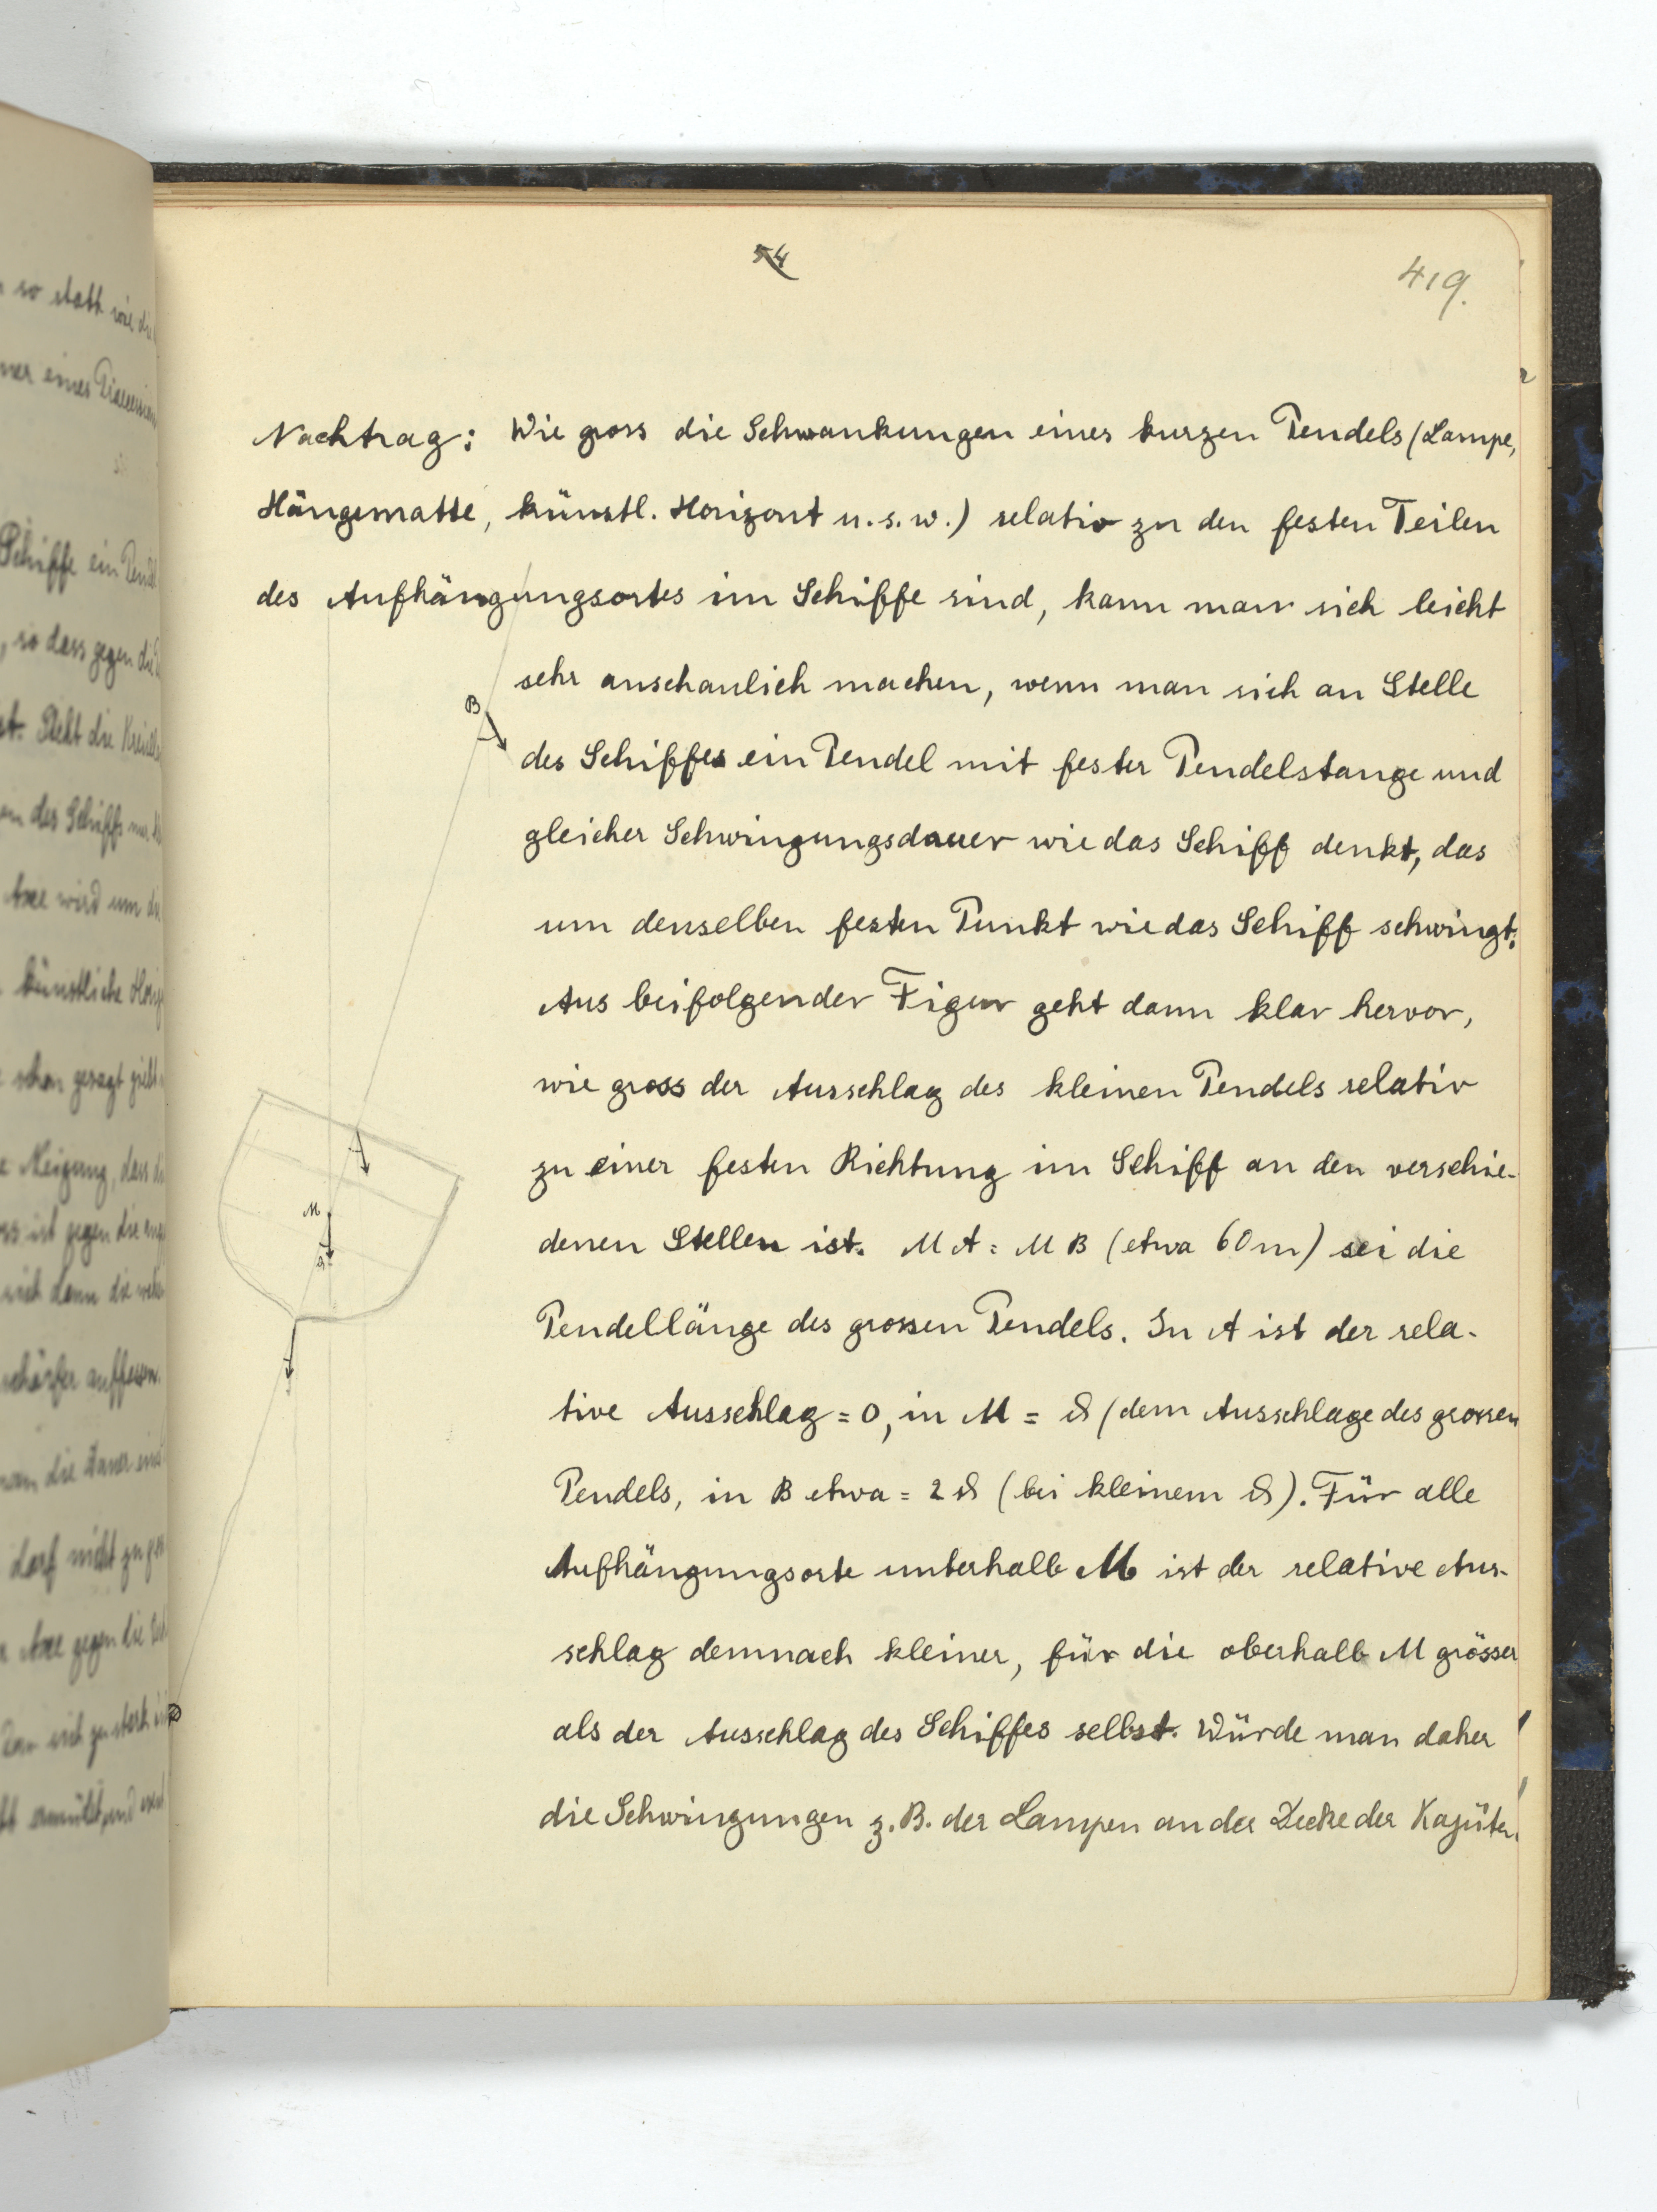 54
419.
Nachtrag: Wie gross die Schwankungen eines kurzen Pendels (Lampe,
Hängematte, künstl. Horizont u. s. w.) relativ zu den festen Teilen
des Aufhängungsortes im Schiffe sind, kann man sich leicht
sehr anschaulich machen, wenn man sich an Stelle
B
des Schiffes ein Pendel mit fester Pendelstange und
gleicher Schwingungsdauer wie das Schiff denkt, das
um denselben festen Punkt wie das Schiff schwingt.
Aus beifolgender Figur geht dann klar hervor,
wie gross der Ausschlag des kleinen Pendels relativ
zu einer festen Richtung im Schiff an den verschie-
M
denen Stellen ist. MA = MB (etwa 60 m) sei die
ϑ
Pendellänge des grossen Pendels. In A ist der rela-
tive Ausschlag = 0, in M = ϑ (dem Ausschlage des grossen
Pendels, in B etwa = 2 ϑ (bei kleinem ϑ). Für alle
Aufhängungsorte unterhalb M ist der relative Aus-
schlag demnach kleiner, für die oberhalb M grösser
als der Ausschlag des Schiffes selbst. Würde man daher
die Schwingungen z. B. der Lampen an der Decke der Kajüten
so statt wie
eines
Schiffe ein
so dass gegen die
des Schiffs
Axe wird um
künstliche
schon gesagt
Neigung, dass
ist gegen die
schärfer auffassen.
die Dauer
darf nicht zu
Axe gegen die